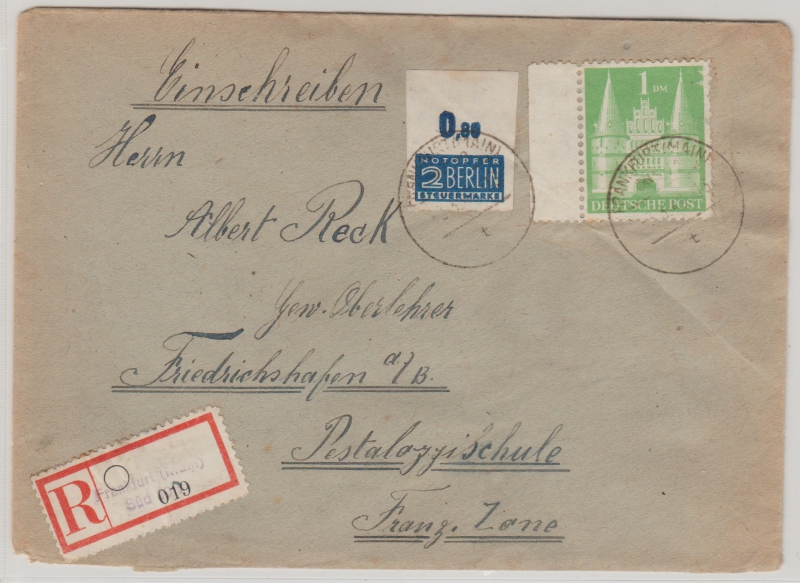 Einschreiben
Herrn
Albert Reck
Gew. Oberlehrer
Friedrichshafen a/B.
Pestalozzischule
Franz. Zone
0,80
NOTOPFER
2 BERLIN
STEUERMARKE
FRANKFURT (MAIN)
1 DM
DEUTSCHE POST
FRANKFURT (MAIN)
R
Frankfurt (Main)
Süd
019